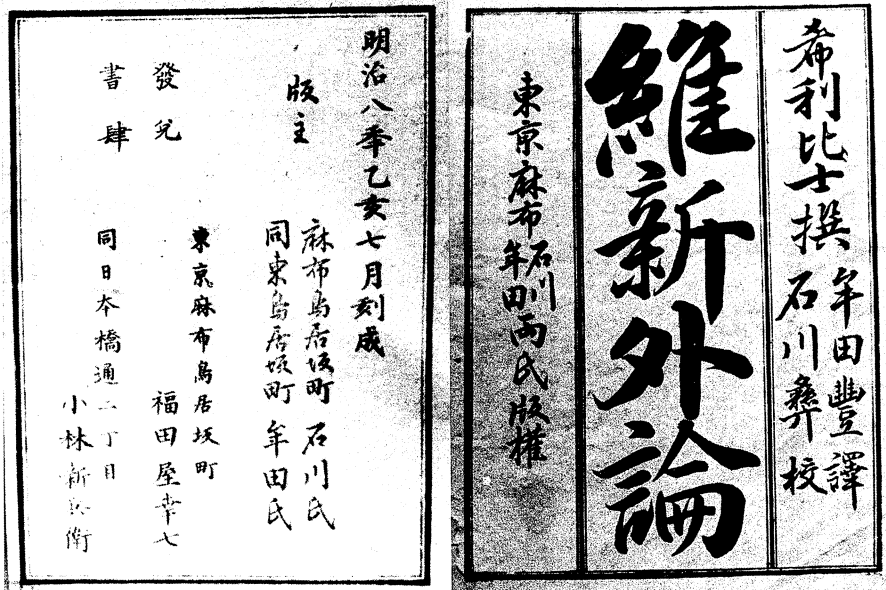 希利比士撰
牟田豐譯
石川彝校
維新外論
東京麻布
石川
牟田
両氏版權
明治八年乙亥七月刻成
版主
麻布鳥居坂町 石川氏
同東鳥居坂町 牟田氏
東京麻布鳥居坂町
發兌
福田屋幸七
書肆
同日本橋通二丁目
小林新兵衛